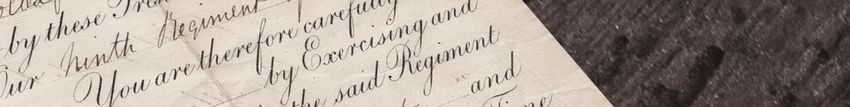 by these
Our Ninth Regiment
You are therefore carefully
by Exercising and
the said Regiment
and
Time